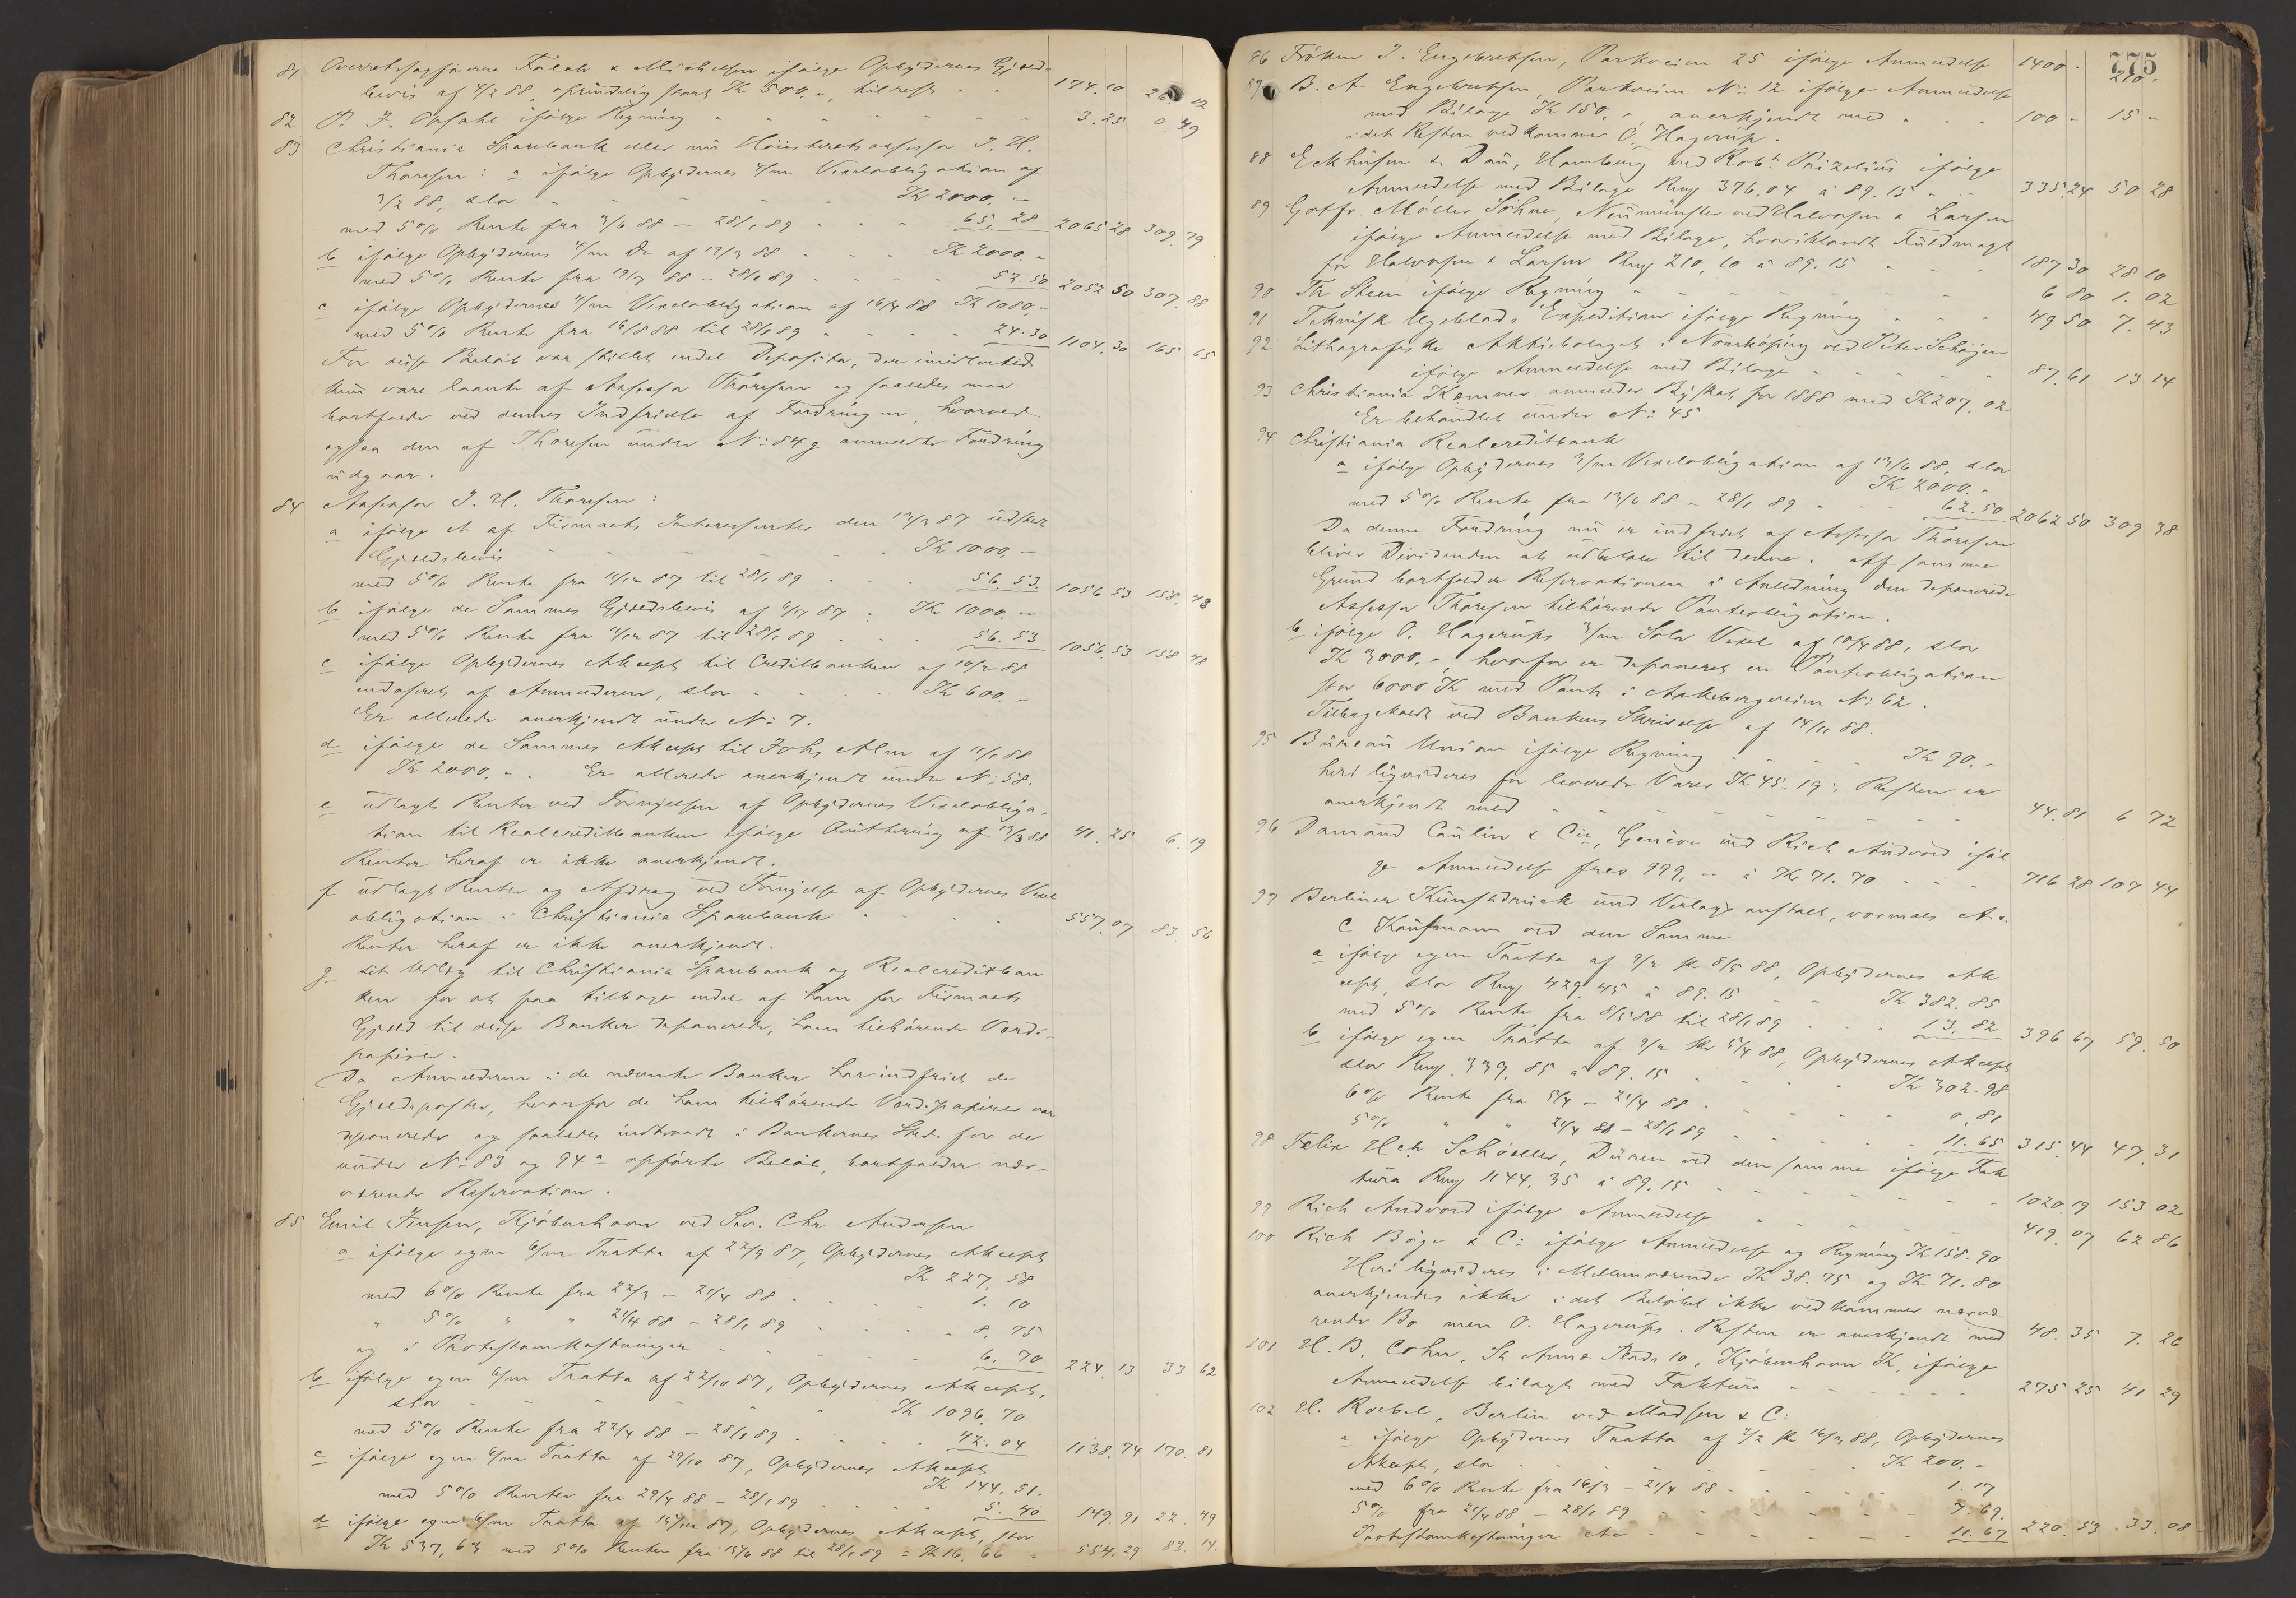 81 Overretssagførerne Falch & Michelsen ifølge Opbydernes Gjælds-
bevis af 4/2 88, oprindelig stort Kr 500,-, tilrest 174.10 26.12
82 P. J. Opsahl ifølge Regning 3.25 0.49
83 Christiania Sparebank eller nu Høiesteretsassessor J. H.
Thoresen: a ifølge Opbydernes Vexelobligation af
88, stor Kr 2000.-
med 5% Rente fra 88 – 28/1 89 65.28 2065.28 309.79
b ifølge Opbydernes Do af 19/3 88 Kr 2000.-
med 5% Rente fra 88 – 28/1 89 52.50 2052 50 307.88
c ifølge Opbydernes Vexelobligation af 88 Kr 1080,-
med 5% Rente fra 16/8 88 til 28/1 89 24.30 1104.30 165 65
For disse Beløb var stillet endel Deposita, der imidlertid
kun vare laante af Assessor Thoresen og saaledes maa
bortfalde ved dennes Indfrielse af Fordringen, hvorved
ogsaa den af Thoresen under No: 84 g anmeldte Fordring
udgaar.
84 Assessor J. H. Thoresen:
a ifølge et af Firmaets Interessenter den 87 udstedt
Gjældsbevis Kr 1000,-
med 5% Rente fra 87 til 28/1 89 56.53. 1056 53 158.48
b ifølge de Sammes Gjældsbevis af 87. Kr 1000,-
med 5% Rente fra 87 til 28/1 89 56.53 1056.53 158 48
c ifølge Opbydernes Akcept til Creditbanken af 88
endosseret af Anmelderen, stor Kr 600,-
Er allerede anerkjendt under No: 7.
d ifølge de Sammes Akcept til Johs Alm af 11/1 88
Kr 2000,-. Er allerede anerkjendt under No: 58.
e udlagt Renter ved Fornyelsen af Opbydernes Vexelobliga-
tion til Realcreditbanken ifølge Qvittering af 13/3 88 41.25 6.19
Renter heraf er ikke anerkjendt.
f udlagt Renter og Afdrag ved Fornyelse af Opbydernes Vexel
obligation i Christiania Sparebank 557.07 83.56
Renter heraf er ikke anerkjendt.
g sit Udlæg til Christiania Sparebank og Realcreditban
ken for at faa tilbage endel af ham for Firmaets
Gjæld til disse Banker deponerede, ham tilhørende Værdi-
papirer.
Da Anmelderen i de nævnte Banker har indfriet de
Gjældsposter, hvorfor de ham tilhørende Værdipapirer var
deponerede og saaledes indtraadt i Bankernes Sted for de
under No: 83 og 94 a opførte Beløb, bortfalder nær-
værende Reservation.
85 Emil Jensen, Kjøbenhavn ved Chr Andersen
a ifølge egen 6/m Tratta af 87, Opbydernes Akcept
Kr 227.58
med 6% Rente fra – 21/4 88 1.10
" 5% " " 21/4 88 – 28/1 89 8.75
og i Protestomkostninger 6.70 224.13 33 62
b ifølge egen 6/m Tratta af 22/10 87, Opbydernes Akcept,
stor Kr 1096.70
med 5% Rente fra 22/4 88 – 28/1 89 42.04 1138.74 170.81
c ifølge egen 6/m Tratta af 29/10 87, Opbydernes Akcept
Kr 144.51.
med 5% Renter fra 29/4 88 – 28/1 89 5.40 149.91 22.49
d ifølge egen 6/m Tratta af 87, Opbydernes Akcept, stor
Kr 537,63 med 5% Renter fra 15/6 88 til 28/1 89 = Kr 16.66 = 554.29 83.14.
775
86 Frøken J. Engebretsen, Parkveien 25 ifølge Anmeldelse 1400 - 210 -
87 B. A Engebretsen, Parkveien No: 12 ifølge Anmeldelse
med Bilage Kr 150,-, anerkjendt med 100 - 15 -
idet Resten vedkommer O. Hagerup.
88 Eckhusen & Dau, Hamburg ved Robt. Prizelius ifølge
Anmeldelse med Bilage Rmg 376.04 à 89.15 335.24 50 28
89 Gotfr. Møller Söhne, Neumünster ved Halvorsen & Larsen
ifølge Anmeldelse med Bilage, hvoriblandt Fuldmagt
for Halvorsen & Larsen Rmg 210,10 à 89.15 187 30 28 10
90 Th Steen ifølge Regning 6 80 1.02
91 Teknisk Ugeblads Expedition ifølge Regning 49 50 7.43
92 Lithografiska Aktiebolaget i Norrköping ved Peter Schøyen
ifølge Anmeldelse med Bilage 87.61 13 14
93 Christiania Kæmner anmelder Byskat for 1888 med Kr 207.02
Er behandlet under No: 45.
94 Christiania Realcreditbank
a ifølge Opbydernes 3/m Vexelobligation af 13/6 88, stor
Kr 2000.-
med 5% Rente fra 13/6 88 – 28/1 89 62.50 2062 50 309 38
Da denne Fordring nu er indfriet af Assessor Thoresen
bliver Dividenden at udbetale til denne. Af samme
Grund bortfalder Reservationen i Anledning den deponerede
Assessor Thoresen tilhørende Panteobligation.
b ifølge O. Hagerups 3/m Sola Vexel af 88, stor
Kr 3000,-, hvorfor er deponeret en Panteobligation
stor 6000 Kr med Pant i Akebergveien No: 62.
Tilbagekaldt ved Bankens Skrivelse af 14/11 88.
95 Bureau Union ifølge Regning Kr 90.-
heri ligvideres for leverede Varer Kr 45.19; Resten er
anerkjendt med 44.81 6 72
96 Damond Caulin & Cie, Genève ved Rich Andvord iføl
ge Anmeldelse frcs 999,- à Kr 71.70 716 28 107 44
97 Berliner Kunstdruck und Verlagsanstalt, vormals A. &
C Kaufmann ved den Samme
a ifølge egen Tratta af pr 8/5 88, Opbydernes Ak
cept, stor Rmg 429.45 à 89.15 Kr 382.85
med 5% Rente fra 8/5 88 til 28/1 89 13.82 396 67 59.50
b ifølge egen Tratta af pr 5/4 88, Opbydernes Akcept
stor Rmg 339.85 à 89.15 Kr 302.98
6% Rente fra 5/4 – 21/4 88 0.81
5% " " 21/4 88 – 28/1 89 11.65 315.44 47.31
98 Felix Hch Schöeller, Düren ved den samme ifølge Fak
tura Rmg 1144.35 à 89.15 1020.19 153 02
99 Rich Andvord ifølge Anmeldelse 419.07 62 86
100 Rich Bøge & Co: ifølge Anmeldelse og Regning Kr 158.90
Heri ligvideres i Mellemværende Kr 38.75 og Kr 71.80
anerkjendes ikke idet Beløbet ikke vedkommer nærvæ
rende Bo men O. Hagerups. Resten er anerkjendt med 48.35 7.26
101 H. B. Cohn, St Annæ Plads 10, Kjøbenhavn K, ifølge
Anmeldelse bilagt med Faktura 275 25 41 29
102 H. Roebel, Berlin ved Madsen & Co:
a ifølge Opbydernes Tratta af pr 16/3 88, Opbydernes
Akcept, stor Kr 200.-
med 6% Rente fra 16/3 – 21/4 88 1.17
5% fra 21/4 88 – 28/1 89 7.69.
Protestomkostninger etc 11.67 220.53 33.08